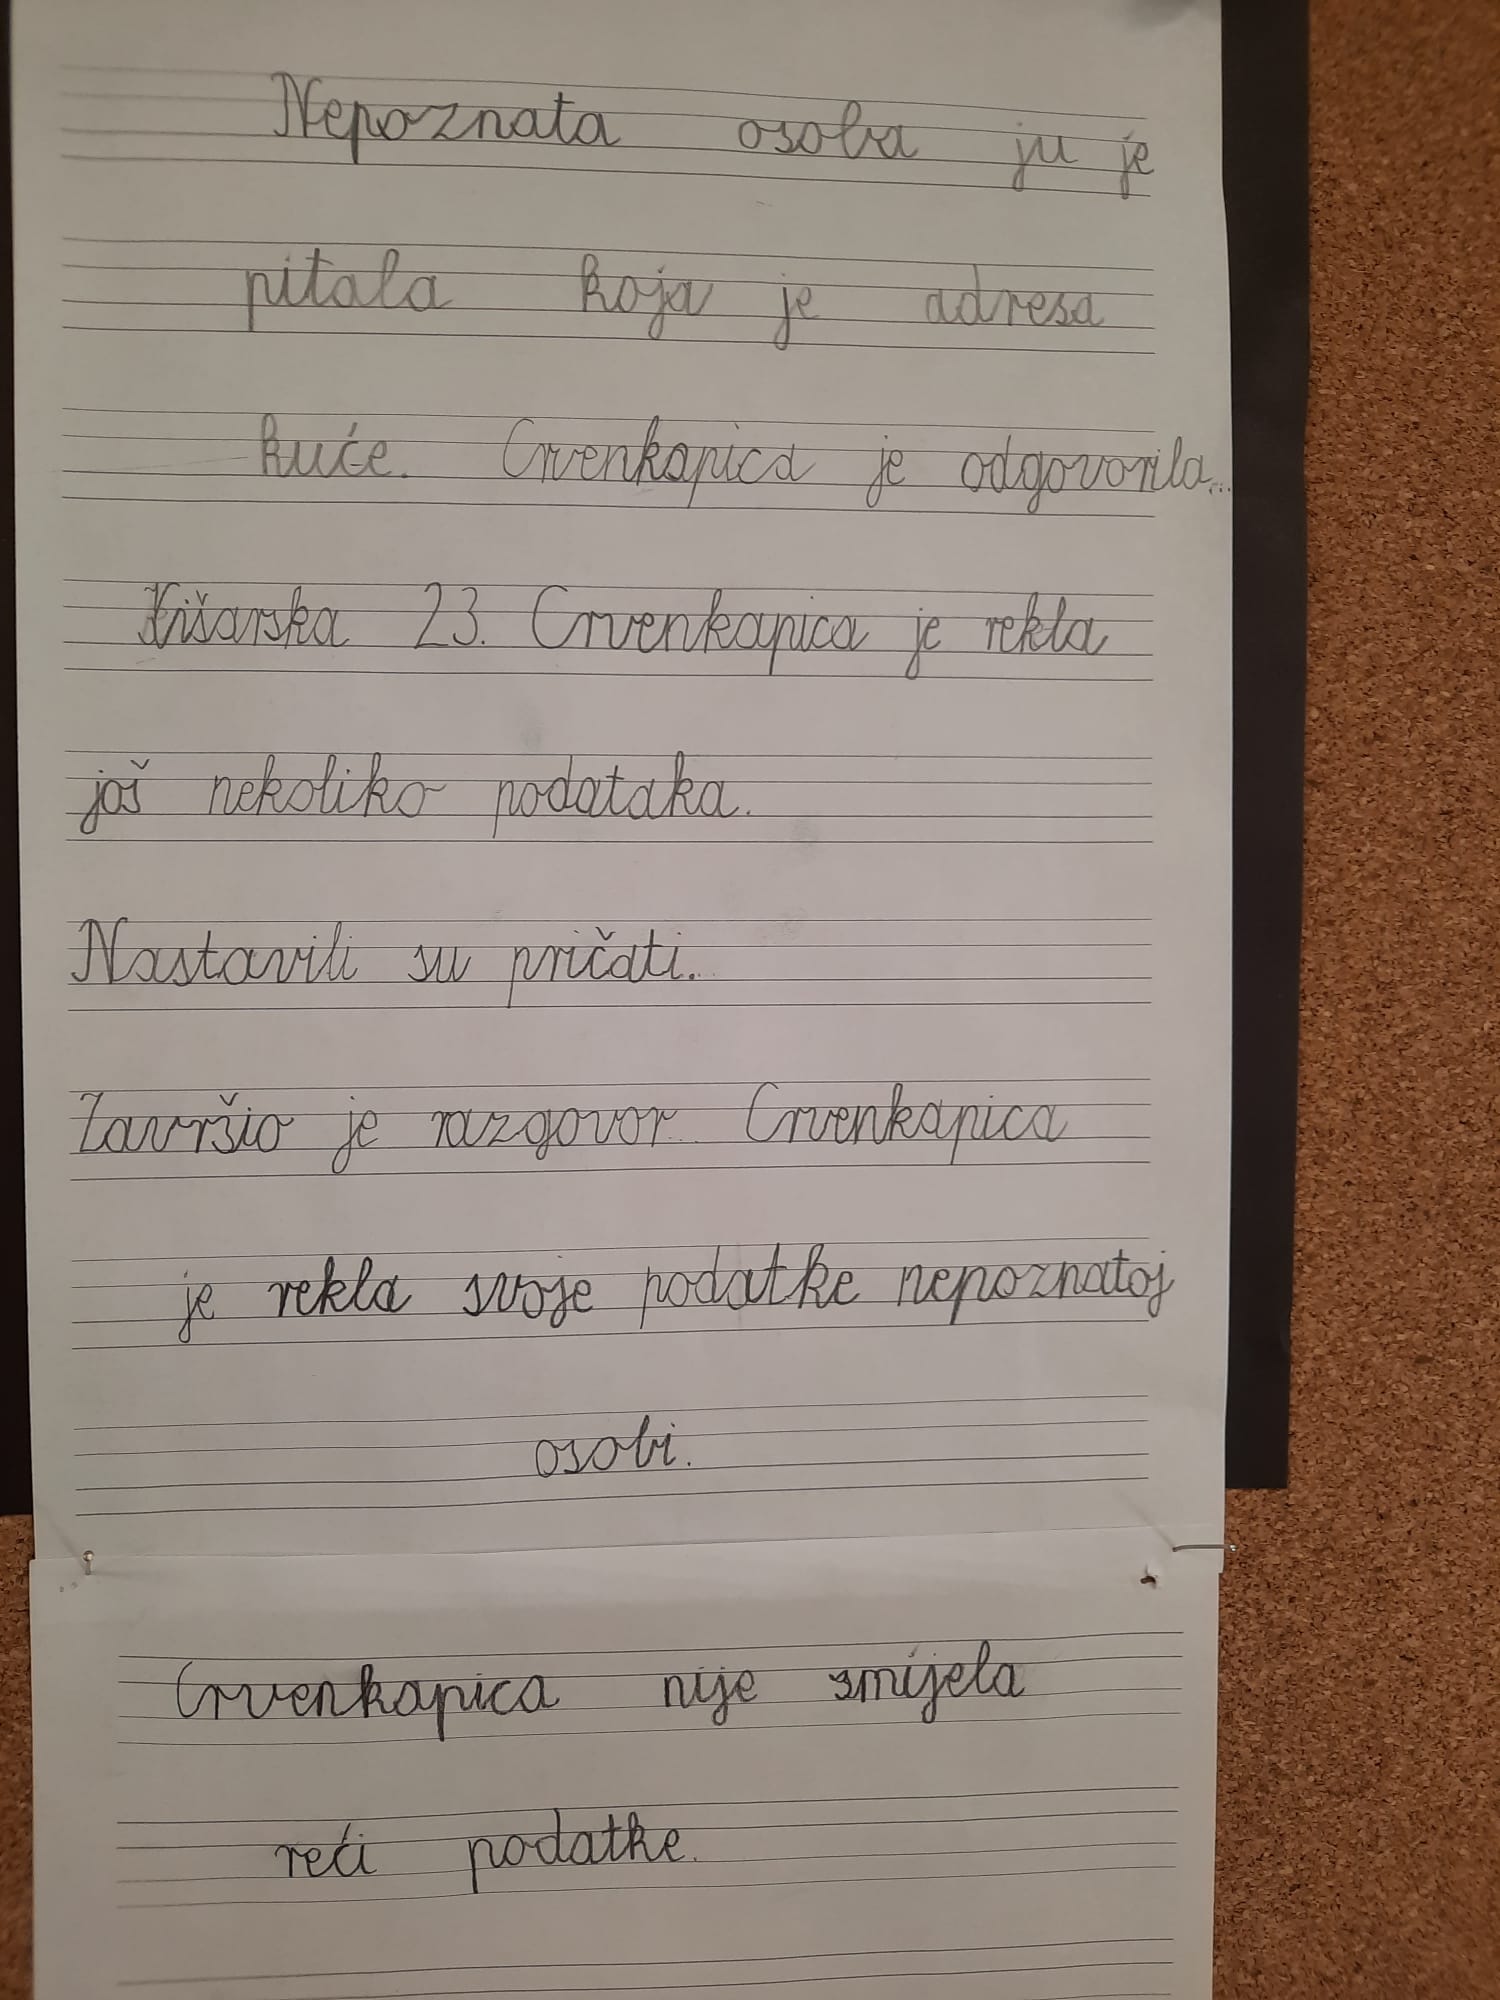 Nepoznata osoba ju je
pitala koja je adresa
kuće. Crvenkapica je odgovorila...
23. Crvenkapica je rekla
još nekoliko podataka.
Nastavili su pričati.
Završio je razgovor. Crvenkapica
je rekla svoje podatke nepoznatoj
osobi.
Crvenkapica nije smijela
reći podatke.